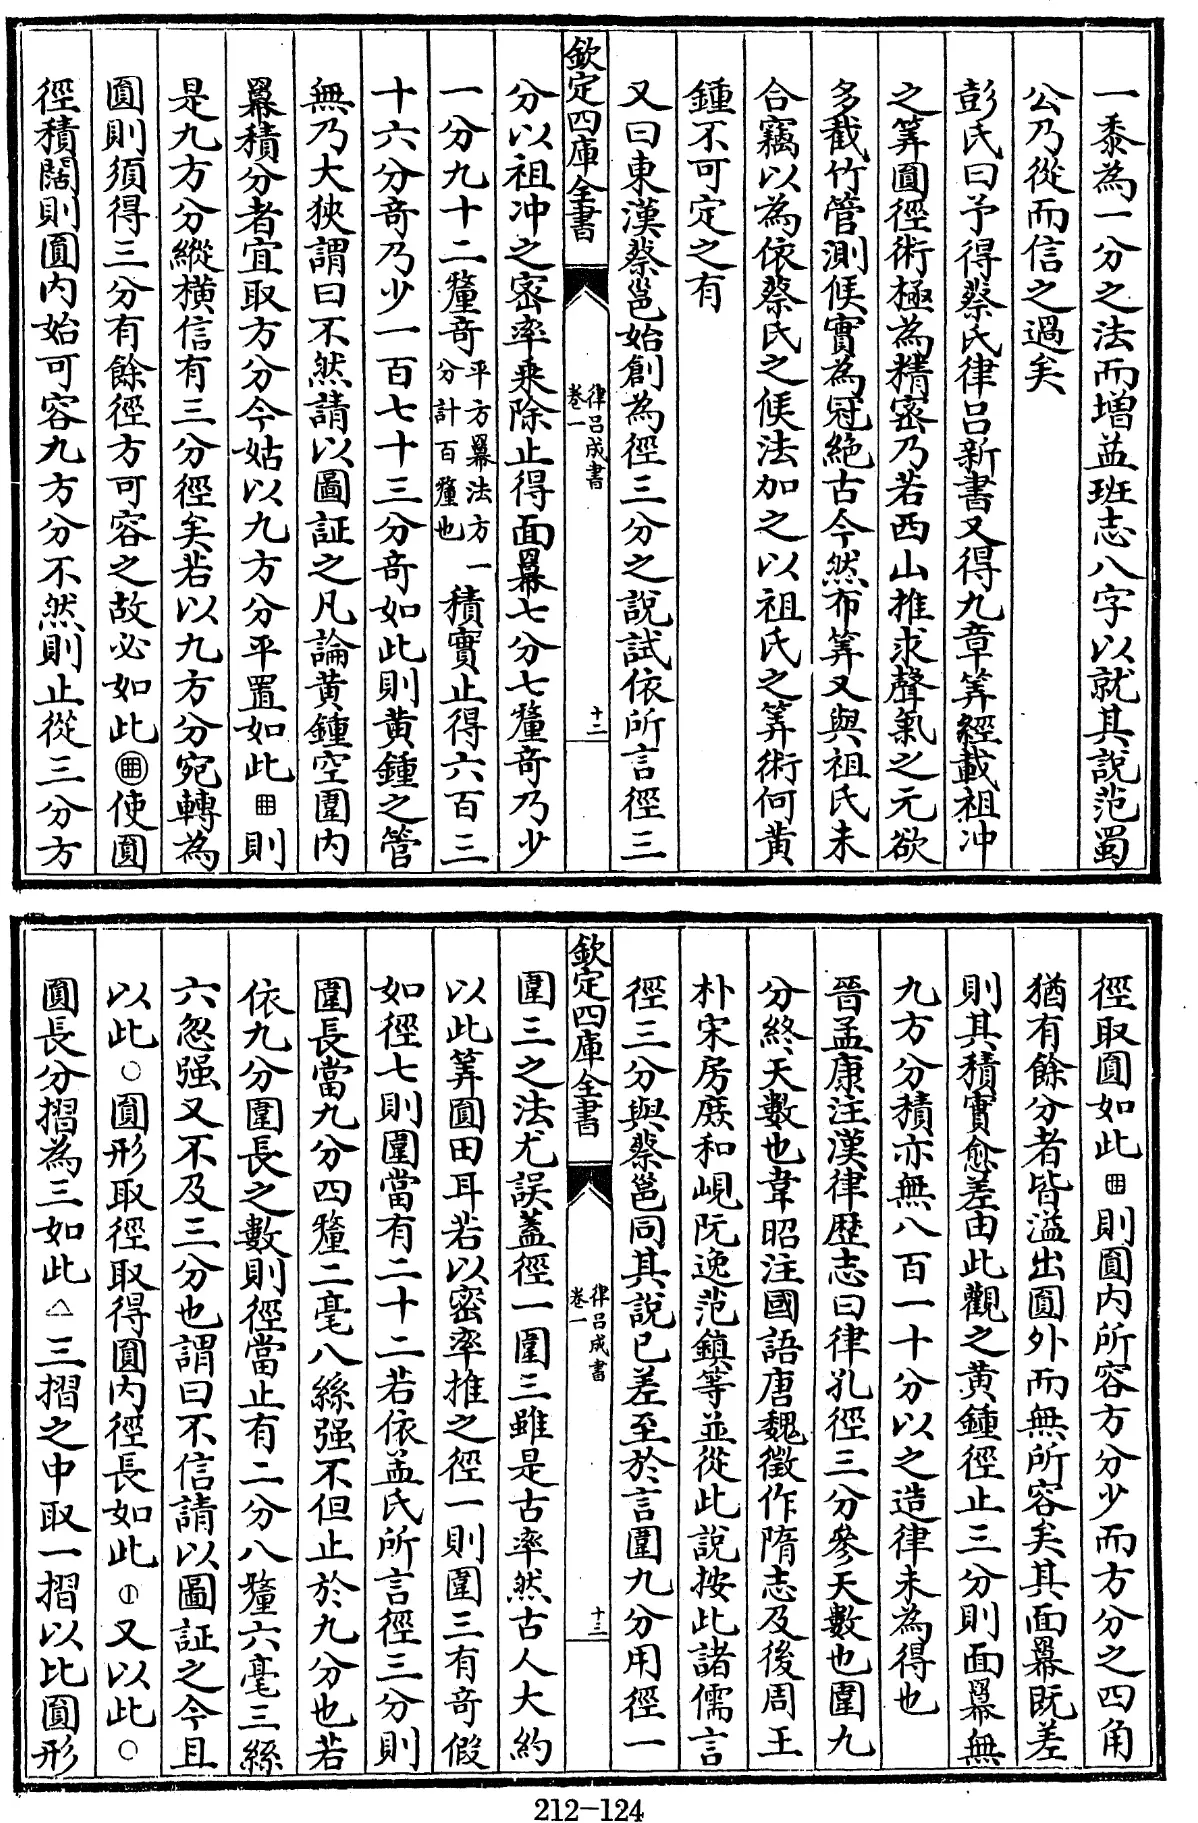 一黍為一分之法而增益班志八字以就其說范蜀
公乃從而信之過矣
彭氏曰予得蔡氏律呂新書又得九章筭經載祖冲
之筭圓徑術極為精宻乃若西山推求聲氣之元欲
多截竹管測候實為冠絶古今然布筭又與祖氏未
合竊以為依蔡氏之候法加之以祖氏之筭術何黄
鍾不可定之有
又曰東漢蔡邕始創為徑三分之說試依所言徑三
欽定四庫全書
律呂成書
卷一
十二
分以祖冲之宻率乘除止得面羃七分七釐竒乃少
一分九十二釐竒平方羃法方一分計百釐也積實止得六百三
十六分竒乃少一百七十三分竒如此則黄鍾之管
無乃大狹謂曰不然請以圖証之凡論黄鍾空圍内
羃積分者宜取方分今姑以九方分平置如此則
是九方分縱横信有三分徑矣若以九方分宛轉為
圓則須得三分有餘徑方可容之故必如此使圓
徑積闊則圓内始可容九方分不然則止從三分方
徑取圓如此則圓内所容方分少而方分之四角
猶有餘分者皆溢出圓外而無所容矣其面羃既差
則其積實愈差由此觀之黄鍾徑止三分則面羃無
九方分積亦無八百一十分以之造律未為得也
晉孟康注漢律歴志曰律孔徑三分參天數也圍九
分終天數也韋昭注國語唐魏徵作隋志及後周王
朴宋房庶和峴阮逸范鎮等並從此說按此諸儒言
徑三分與蔡邕同其說已差至於言圍九分用徑一
欽定四庫全書
律呂成書
卷一
十三
圍三之法尤誤蓋徑一圍三雖是古率然古人大約
以此筭圓田耳若以宻率推之徑一則圍三有竒假
如徑七則圍當有二十二若依孟氏所言徑三分則
圍長當九分四釐二毫八絲强不但止於九分也若
依九分圍長之數則徑當止有二分八釐六毫三絲
六忽强又不及三分也謂曰不信請以圖証之今且
以此○圓形取徑取得圓内徑長如此又以此○
圓長分摺為三如此△三摺之中取一摺以比圓形
212-124